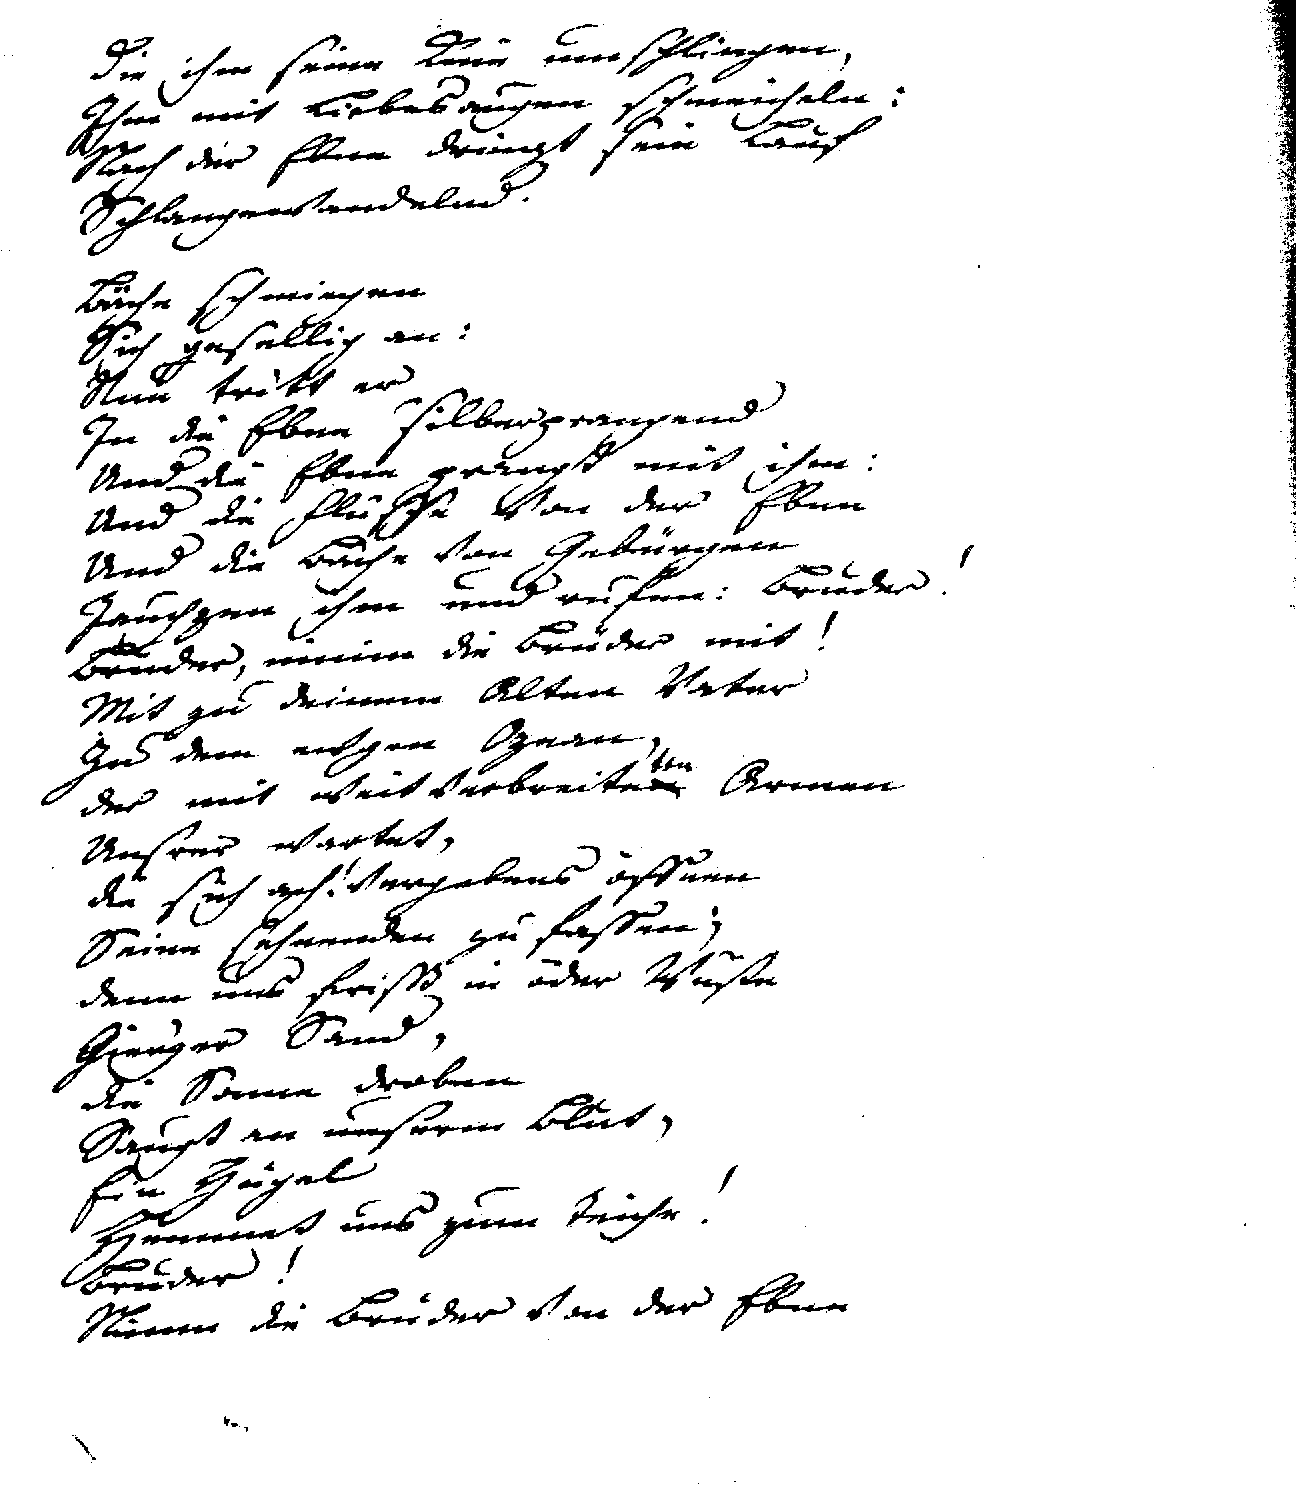 Die ihm seine Knie umschlingen,
Ihm mit Liebesaugen schmeicheln:
Nach der Ebne dringt sein Lauf
Schlangewandelnd.
Bäche schmiegen
Sich gesellig an:
Nun tritt er
In die Ebne silberprangend
Und die Ebne prangt mit ihm:
Und die Flüsse von der Ebne
Und die Bäche von Gebürgen
Jauchzen ihm und rufen: Bruder!
Bruder, nimm die Brüder mit!
Mit zu deinem Alten Vater
Zu dem ewgen Ozean,
der mit weitverbreiteten Armen
Unsrer wartet,
die sich ach! vergebens öffnen
Seine Sehnenden zu fassen;
denn uns frisst in öder Wüste
Gieriger Sand,
die Sonne droben
Saugt an unserm Blut,
Ein Hügel
Hemmet uns zum Teiche!
Bruder!
Nimm die Brüder von der Ebne